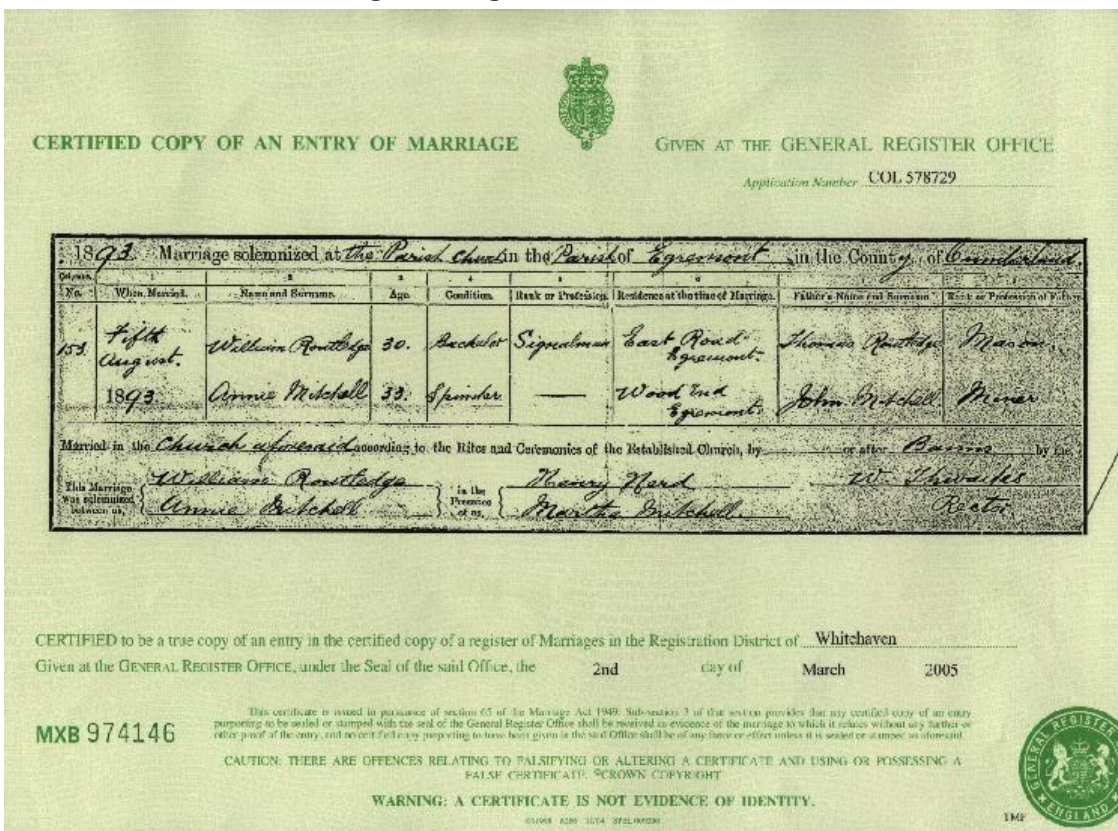 CERTIFIED COPY OF AN ENTRY OF MARRIAGE
GIVEN AT THE GENERAL REGISTER OFFICE
Application Number COL 578729
1893. Marriage solemnized at the Parish Church in the Parish of Egremont in the County of Cumberland.
No. When Married. Name and Surname. Age. Condition. Rank or Profession. Residence at the time of Marriage. Father's Name and Surname. Rank or Profession of Father.
153. Fifth August. 1893. William Routledge 30. Bachelor Signalman East Road Egremont. Thomas Routledge Mason.
Annie Mitchell 33. Spinster — Wood End Egremont. John Mitchell Miner
Married in the Church aforesaid according to the Rites and Ceremonies of the Established Church, by or after Banns by me,
This Marriage was solemnized between us, William Routledge Annie Mitchell in the Presence of us, Henry Martha Mitchell. W. Thwaites Rector.
CERTIFIED to be a true copy of an entry in the certified copy of a register of Marriages in the Registration District of Whitehaven
Given at the GENERAL REGISTER OFFICE, under the Seal of the said Office, the 2nd day of March 2005
MXB 974146
This certificate is issued in pursuance of section 65 of the Marriage Act 1949. Sub-section 3 of that section provides that any certified copy of an entry
purporting to be sealed or stamped with the seal of the General Register Office shall be received as evidence of the marriage to which it relates without any further or
other proof of the entry, and no certified copy purporting to have been given in the said Office shall be of any force or effect unless it is sealed or stamped as aforesaid.
CAUTION: THERE ARE OFFENCES RELATING TO FALSIFYING OR ALTERING A CERTIFICATE AND USING OR POSSESSING A
FALSE CERTIFICATE. ©CROWN COPYRIGHT
WARNING: A CERTIFICATE IS NOT EVIDENCE OF IDENTITY.
GENERAL REGISTER
ENGLAND